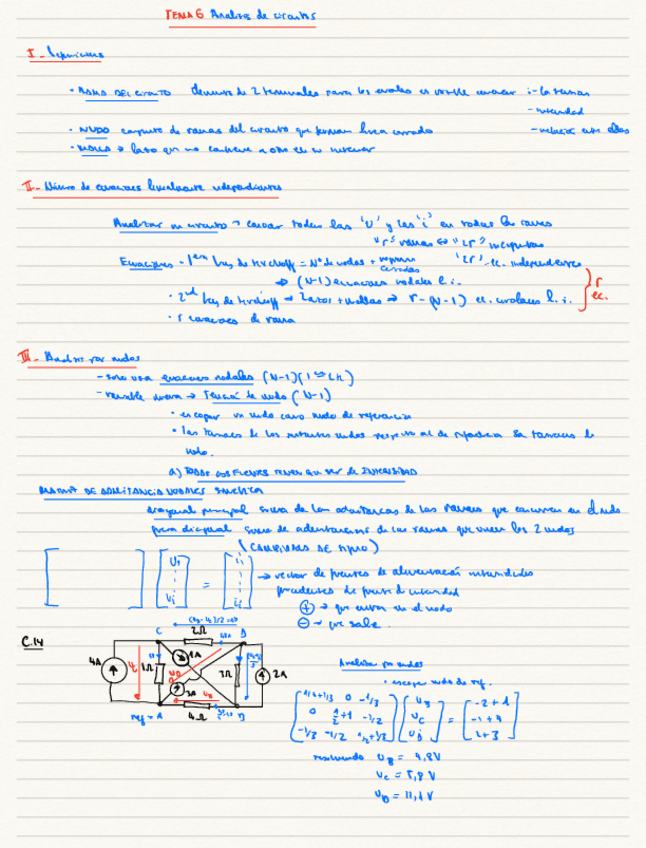 TEMA 6 Analisis de circuitos
I - Definiciones
• RAMA DEL CIRCUITO elemento de 2 terminales para los cuales es posible conocer :- la tension
- intensidad
• NUDO conjunto de ramas del circuito que forman linea cerrada
- relacion entre ellas
• MALLA → lazo que no contiene a otro en su interior
II - Número de ecuaciones linealmente independientes
Analizar un circuito → conocer todas las "U" y las "i" en todas las ramas
"r" ramas ⇔ "2r" incognitas
Ecuaciones - 1era Ley de Kirchoff = Nº de nudos + "2r" ec. independientes
⇒ (N-1) ecuaciones nodales l.i.
• 2nd Ley de Kirchoff → Lazos + mallas ⇒ r-(N-1) ec. l.i.
r ec.
• r ecuaciones de rama
III - Analisis por nudos
- solo usa ecuaciones nodales (N-1) (1ª LK)
- variable → Tensión de nudo (N-1)
• escoger un nudo como nudo de referencia
• las tensiones de los restantes nudos respecto al de referencia son tensiones de
nudo.
a) TODAS LAS FUENTES TIENEN QUE SER DE INTENSIDAD
MATRIZ DE ADMITANCIAS NODALES simetrica
diagonal principal suma de las admitancias de las ramas que concurren en el nudo
fuera diagonal suma de admitancias de las ramas que unen los 2 nudos
(CAMBIADAS DE SIGNO)
[ ] [U1 ⋮ Ui] = [i1 ⋮ ii] → vector de fuentes de alimentación intensidades
procedentes de fuente de intensidad
⊕ → que entra en el nudo
⊖ → que sale.
C.14
C
2Ω
D
4A
1Ω
1A
3A
3Ω
2A
ref = A
4Ω
B
Analisis por nudos
• escoger nudo de ref.
[1/4+1/3 0 -1/3
0 1/2+1 -1/2
-1/3 -1/2 1/2+1/3] [UB UC UD] = [-2+1
-1+4
2+3]
resolviendo UB = 4,8V
UC = 5,8V
UD = 11,4V